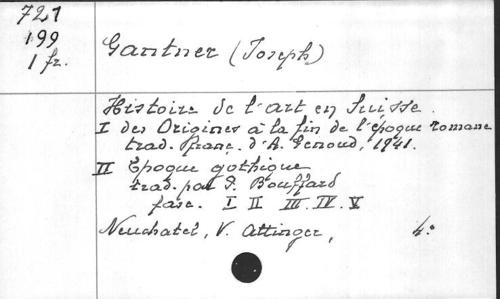 721
199
1 fr.
Gantner (Joseph)
Histoire de l'art en Suisse.
I des Origines à la fin de l'époque romane
trad. franç. d'A. Genoud, 1941.
II Epoque gothique
trad. par P. Bouffard
fasc. I II III. IV. V
Neuchatel, V. Attinger, 4°